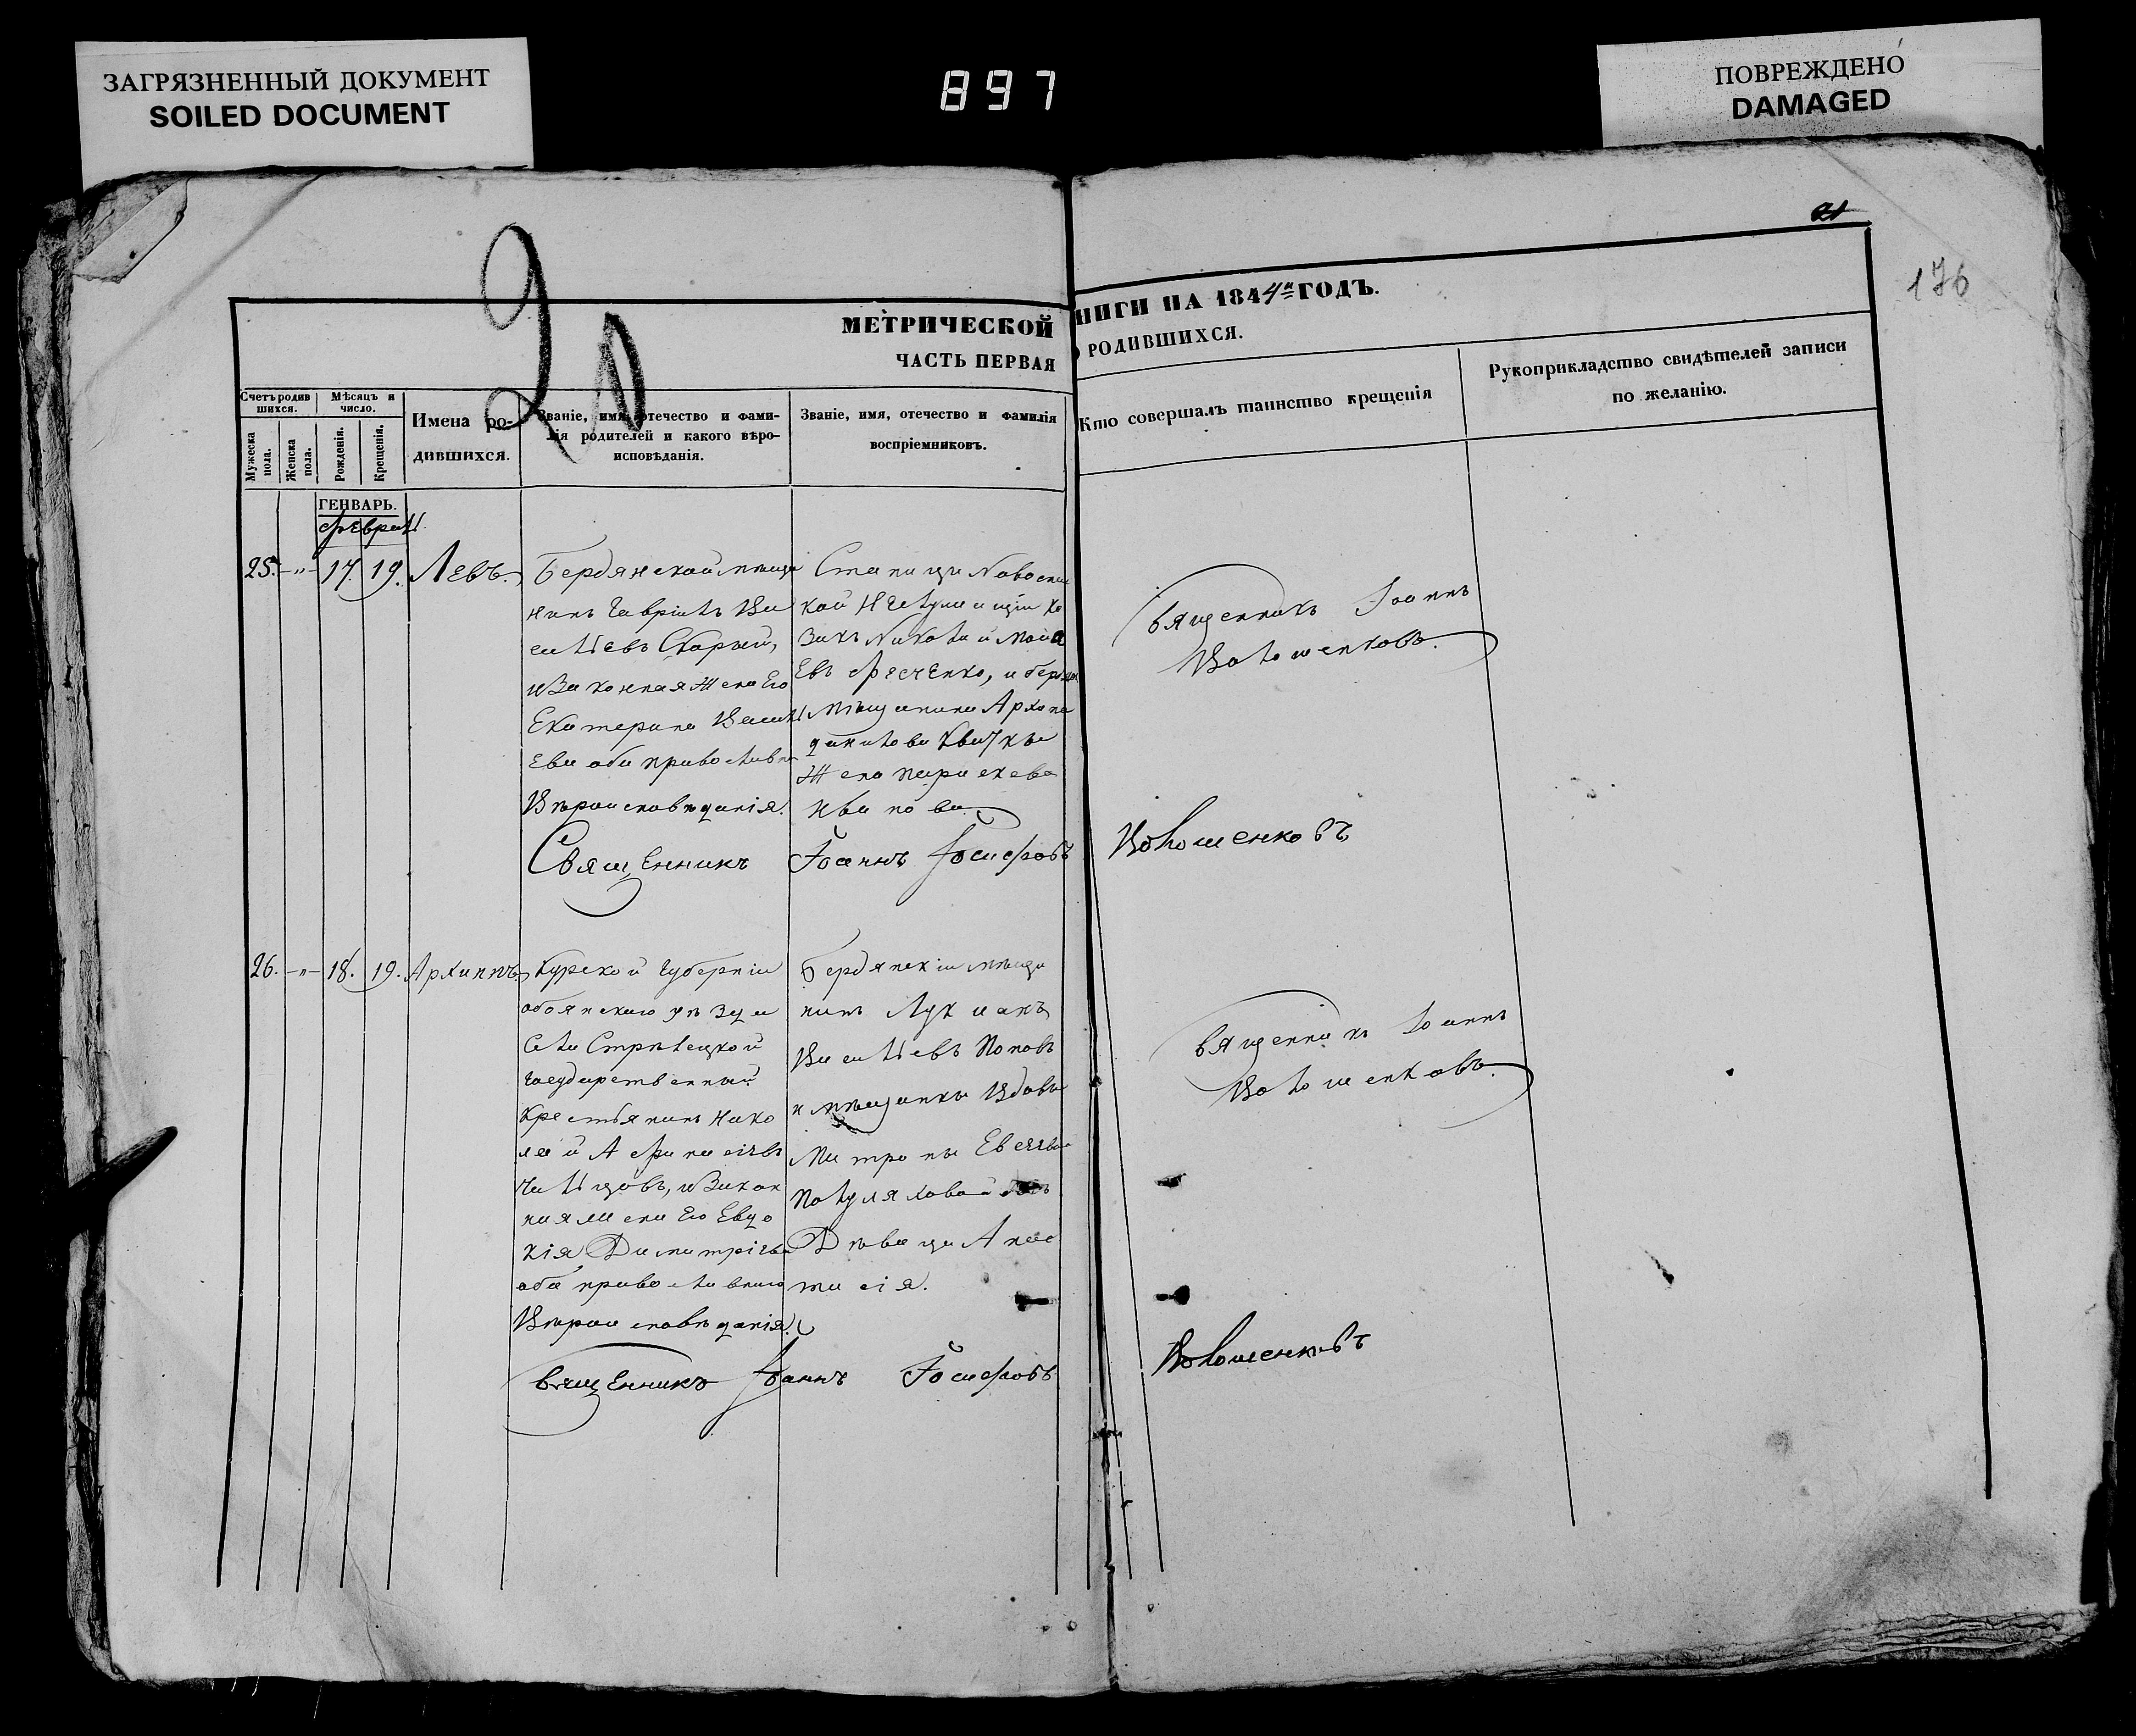 ЗАГРЯЗНЕННЫЙ ДОКУМЕНТ
SOILED DOCUMENT
897
ПОВРЕЖДЕНО
DAMAGED
21
176
20
МЕТРИЧЕСКОЙ
НИГИ НА 1844й ГОДЪ.
ЧАСТЬ ПЕРВАЯ
О РОДИВШИХСЯ.
Счетъ родив
шихся.
Мужеска пола.
Женска пола.
Мѣсяцъ и
число.
Рожденія.
Крещенія.
Имена ро-
дившихся.
Званіе, имя, отечество и фами-
лія родителей и какого вѣро-
исповѣданія.
Званіе, имя, отечество и фамилія
воспріемниковъ.
Кто совершалъ таинство крещенія
Рукоприкладство свидѣтелей записи
по желанію.
ГЕНВАРЬ.
Февраль
25. -"- 17. 19. Левъ.
Бердянской мѣща
нинъ Гавріилъ Ва
сильевъ Скорый,
и Законная Жена Его
Екатерина Василь
Ева оба православн
Вѣроисповѣданія.
Станици Новоспас
кой
закъ Николай
Мѣщанина
Данилова
Жена Параскева
Иванова.
Священникъ Іоаннъ
Волошенковъ.
Священникъ Іоаннъ Іосифовъ Волошенковъ
26. -"- 18. 19. Архиппъ.
Курской Губерніи
обоянскаго уѣзда
Села Стрѣлецкой
Государственный
Крестьянинъ Нико
лай Афанасіевъ
и Закон
ная жена Его Евдо
кія Димитріева
оба православнаго
Вѣроисповѣданія.
Бердянскій мѣща
нинъ Лукіанъ
Васильевъ Поповъ
и мѣщанки Вдовы
Матроны
Дѣвица Анас
тасія.
Священникъ Іоаннъ
Волошенковъ.
Священникъ Іоаннъ Іосифовъ Волошенковъ